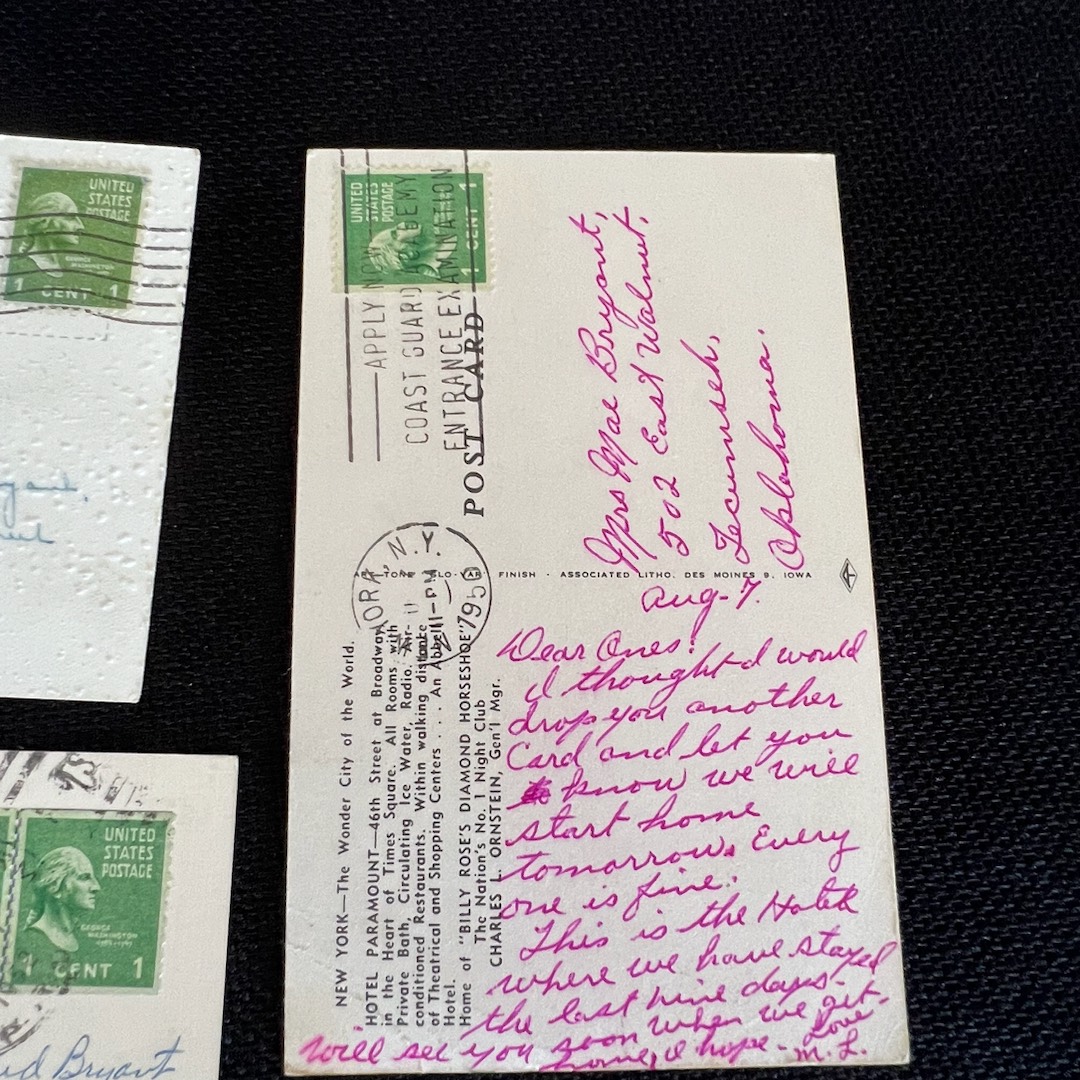 UNITED
STATES
POSTAGE
GEORGE
WASHINGTON
1 CENT 1
UNITED
STATES
POSTAGE
1 CENT 1
APPLY NOW
COAST GUARD ACADEMY
ENTRANCE EXAMINATION
POST CARD
N.Y.
11-PM
1950
Mrs Mae Bryant,
502 East Walnut,
Tecumseh,
Oklahoma.
FINISH · ASSOCIATED LITHO. DES MOINES 9, IOWA
NEW YORK—The Wonder City of the World.
HOTEL PARAMOUNT—46th Street at Broadway
in the Heart of Times Square. All Rooms with
Private Bath, Circulating Ice Water, Radio. Air-
conditioned Restaurants. Within walking distance
of Theatrical and Shopping Centers . . . An Abbell
Hotel.
Home of "BILLY ROSE'S DIAMOND HORSESHOE"
The Nation's No. 1 Night Club
CHARLES L. ORNSTEIN, Gen'l Mgr.
Aug-7.
Dear Ones:
I thought I would
drop you another
Card and let you
know we will
start home
tomorrow. Every
one is fine.
This is the Hotel
where we have stayed
the last nine days.
Will see you soon when we get
home, I hope -
Love
M. L.
UNITED
STATES
POSTAGE
GEORGE
WASHINGTON
1 CENT 1
Bryant